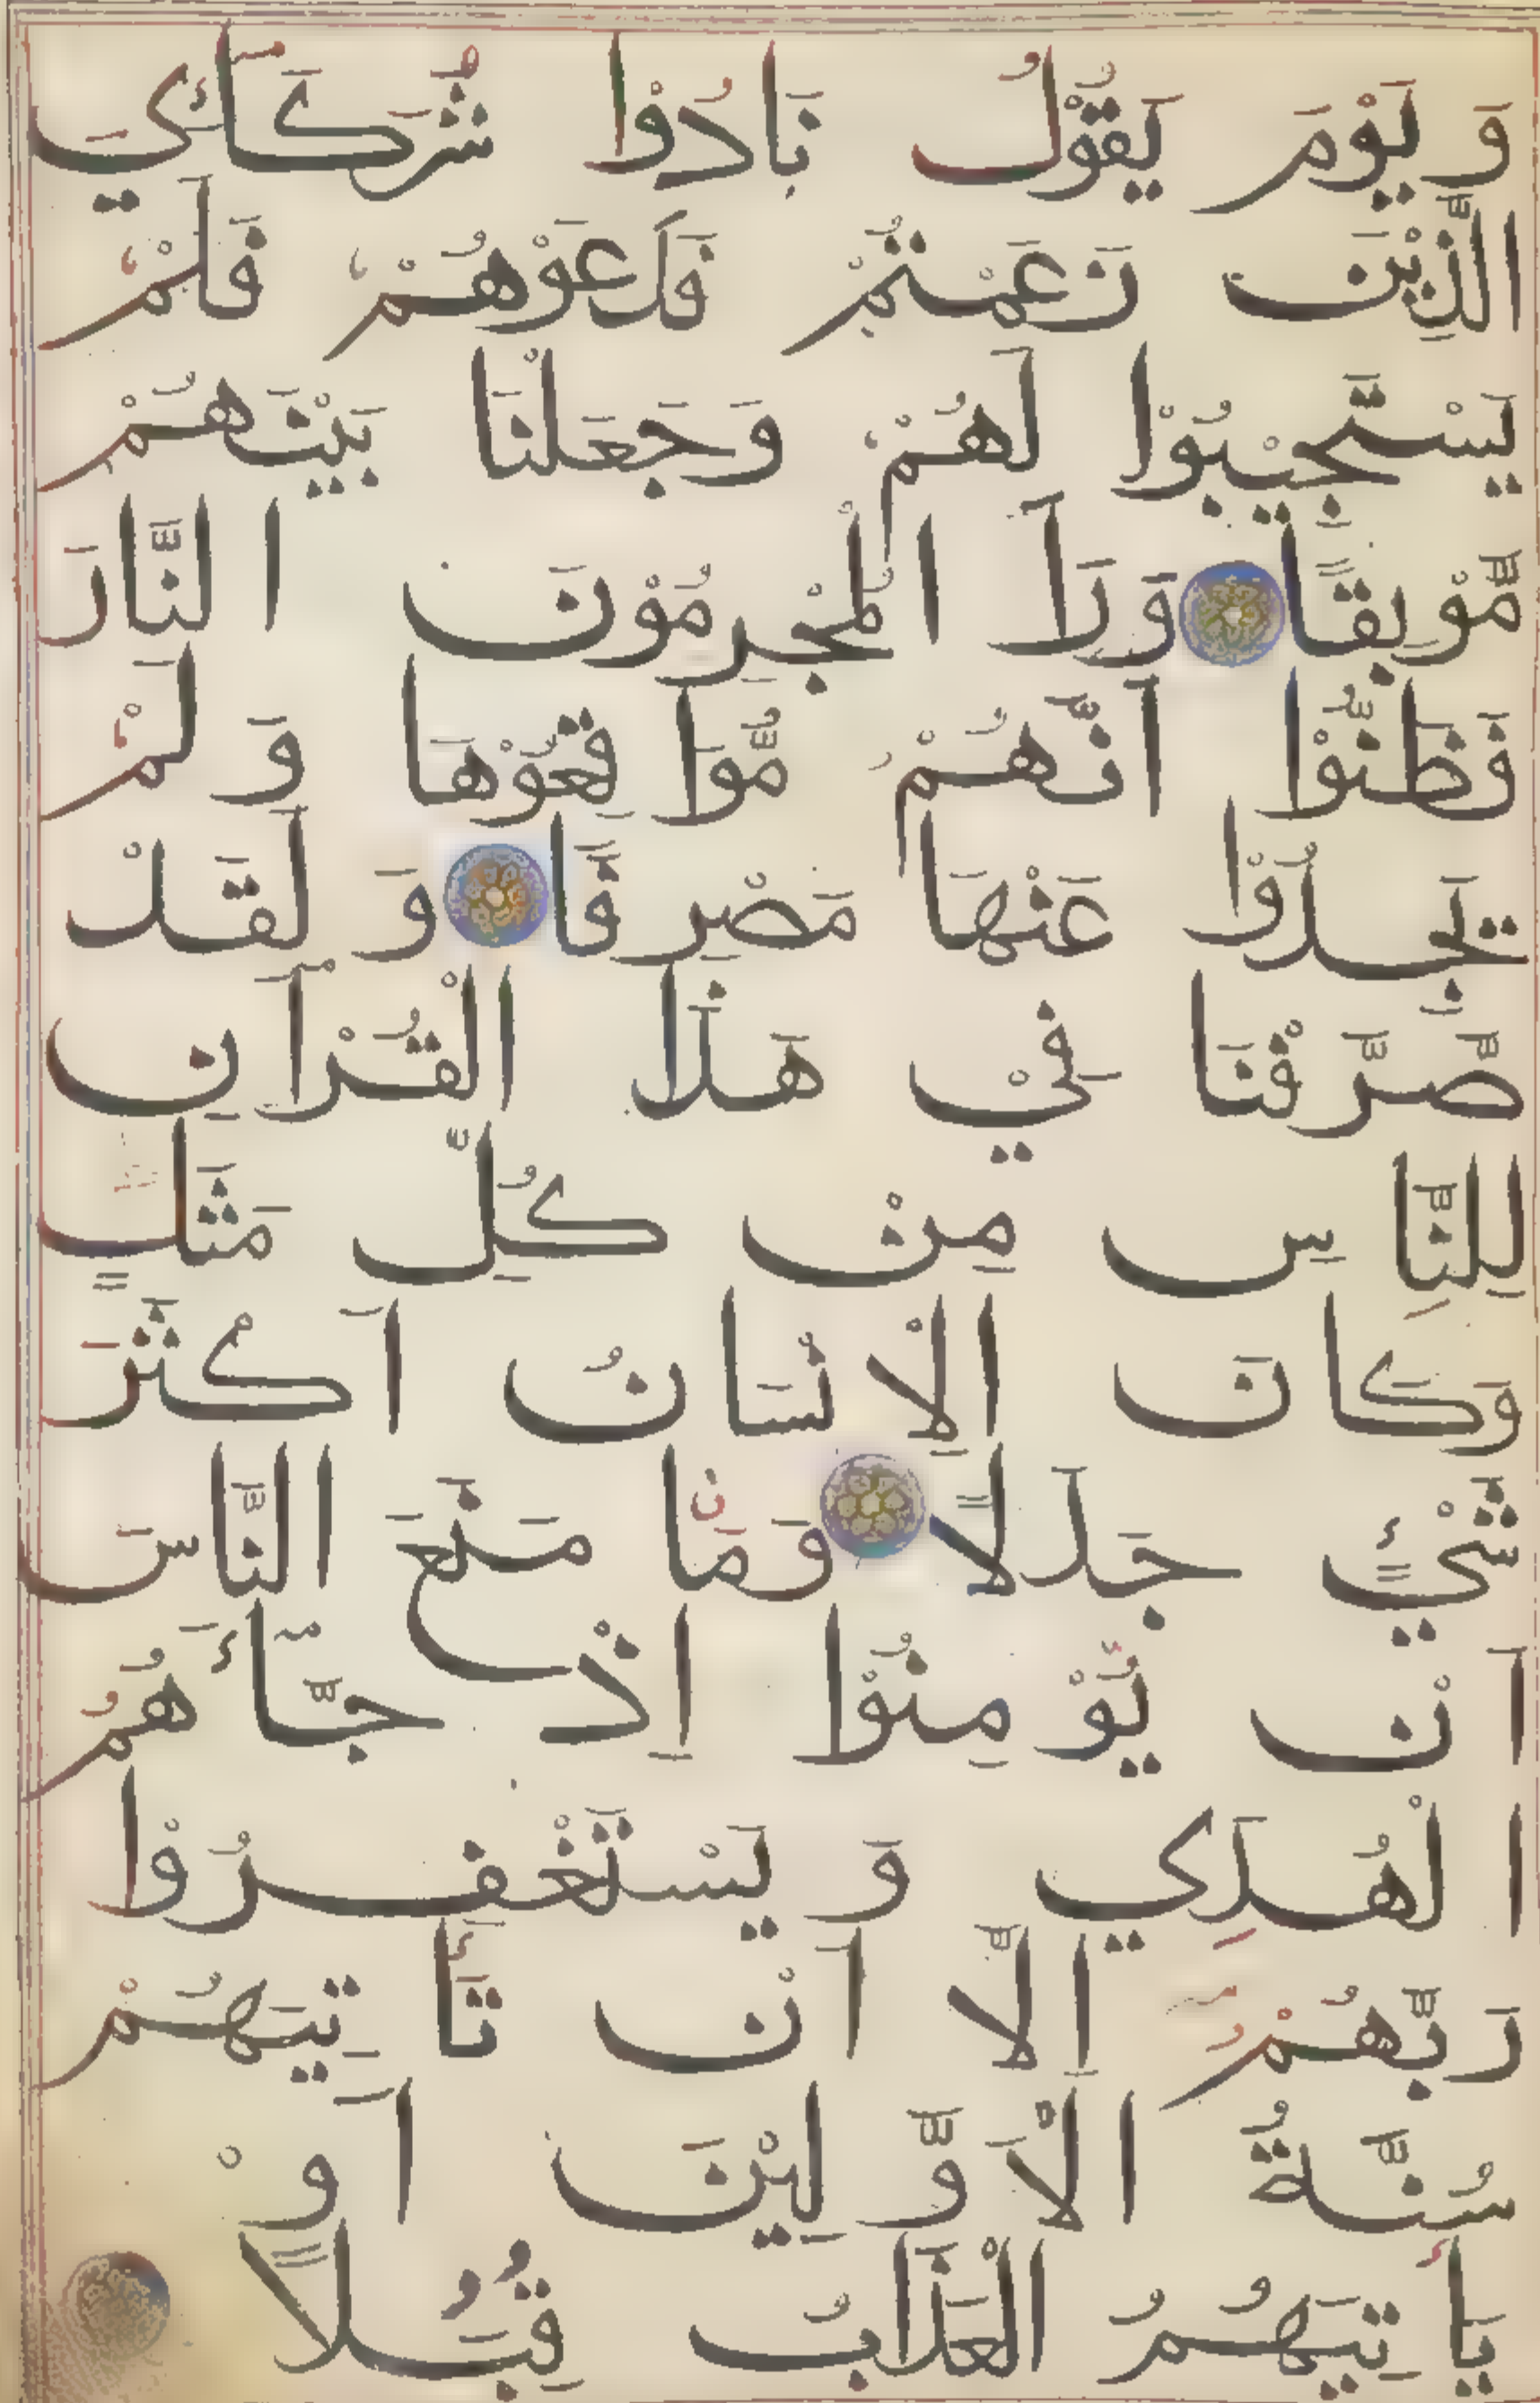 وَ يَوْمَ يَقُوْلُ نَادُوْا شُرَكَآئِيَ
الَّذِيْنَ زَعَمْتُمْ فَدَعَوْهُمْ فَلَمْ
يَسْتَجِيْبُوْا لَهُمْ وَجَعَلْنَا بَيْنَهُمْ
مَّوْبِقًا وَرَاَ الْمُجْرِمُوْنَ النَّارَ
فَظَنُّوْا اَنَّهُمْ مُّوَاقِعُوْهَا وَ لَمْ
يَجِدُوْا عَنْهَا مَصْرِفًا وَ لَقَدْ
صَرَّفْنَا فِيْ هَذَا الْقُرْآنِ
لِلنَّاسِ مِنْ كُلِّ مَثَلٍ
وَكَانَ الْاِنْسَانُ اَكْثَرَ
شَيْءٍ جَدَلًا وَمَا مَنَعَ النَّاسَ
اَنْ يُؤْمِنُوْا اِذْ جَّآءَهُمُ
الْهُدَي وَ يَسْتَغْفِرُوْا
رَبَّهُمْ اِلَّا اَنْ تَأْتِيَهُمْ
سُنَّةُ الْاَوَّلِيْنَ اَوْ
يَأْتِيَهُمُ الْعَذَابُ قِبَلًا